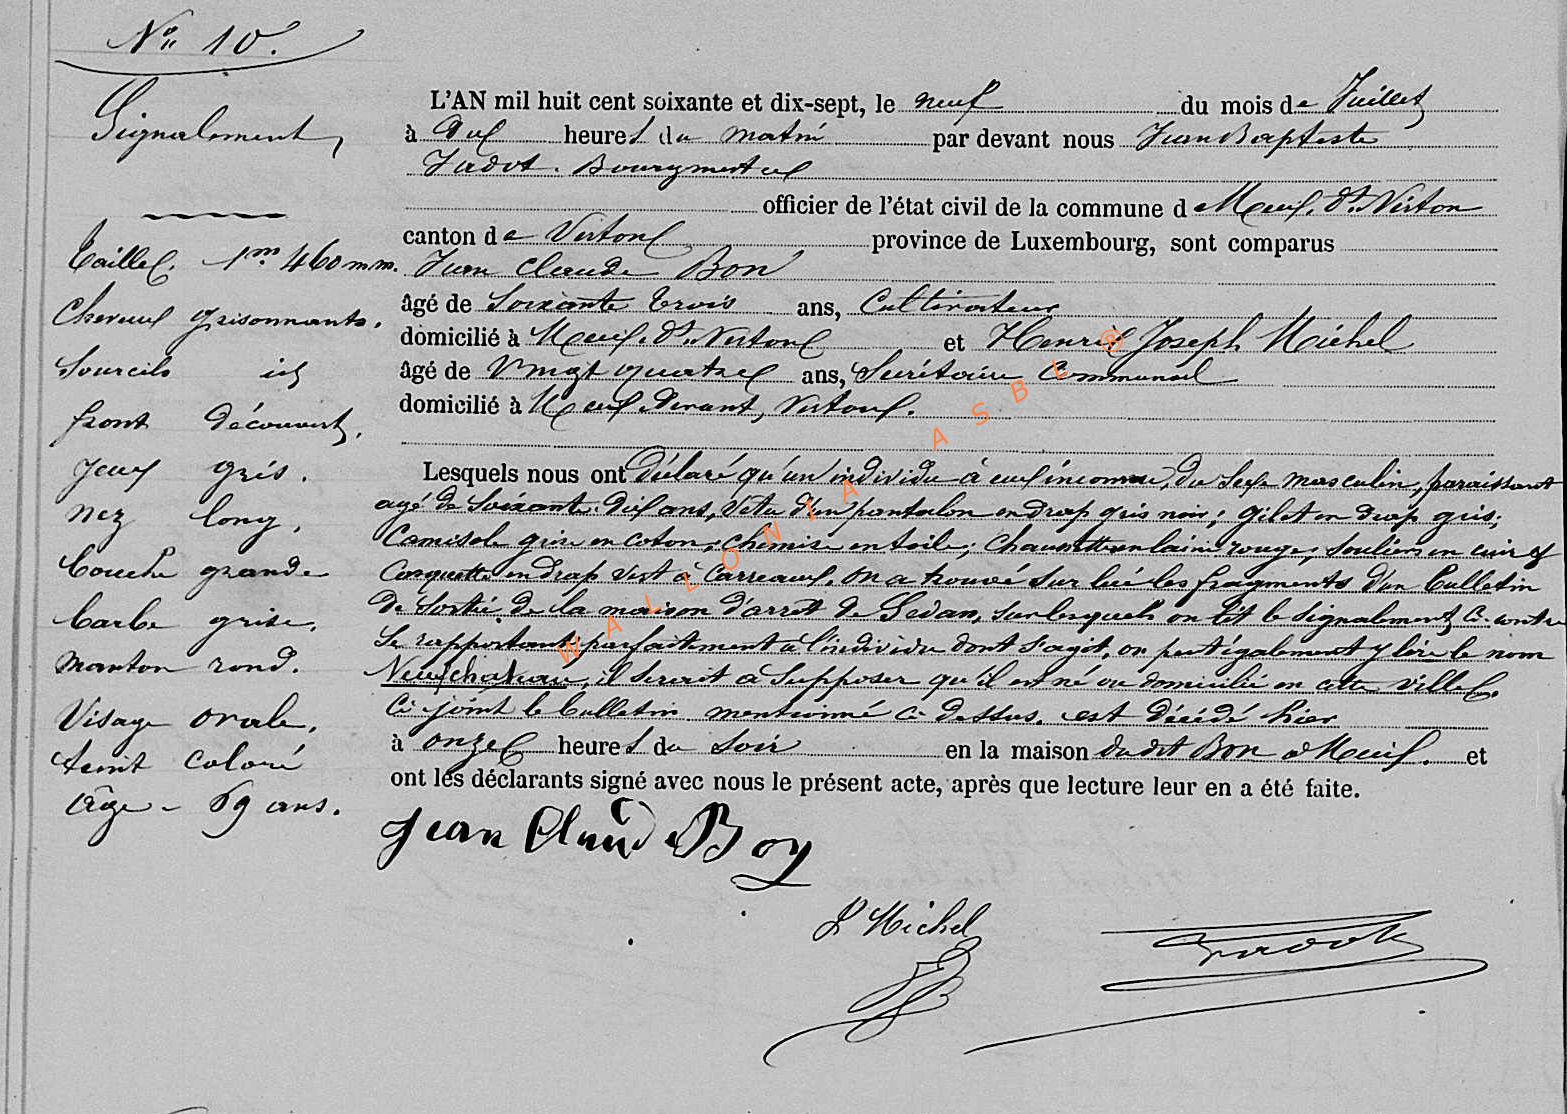 N° 10.
Signalement,
Taille. 1m. 460 m.m.
Cheveux grisonnants.
Sourcils id
front découvert,
yeux gris.
nez long,
bouche grande
barbe grise,
menton rond.
Visage ovale,
teint coloré
âge - 69 ans.
L'AN mil huit cent soixante et dix-sept, le neuf du mois de Juillet
à dix heures du matin par devant nous Jean Baptiste
Jadot. Bourgmestre
officier de l'état civil de la commune de Meix. dt. Virton
canton de Virton province de Luxembourg, sont comparus
Jean Claude Bon
âgé de Soixante trois ans, Cultivateur
domicilié à Meix. dt. Virton et Henri Joseph Michel
âgé de Vingt quatre ans, Secrétaire Communal
domicilié à Meix devant, Virton.
Lesquels nous ont déclaré qu'un individu à eux inconnu, du sexe masculin, paraissant
agé de Soixante. dix ans, Vêtu d'un pantalon en drap gris noir; gilet en drap gris;
Camisole grise en coton; chemise en toile; chaussettes en laine rouge; souliers en cuir &
Casquette en drap vert à carreaux. On a trouvé sur lui les fragments d'un bulletin
de sortie de la maison d'arrêt de Sedan, sur lesquels on lit le signalement ci-contre
se rapportant parfaitement à l'individu dont s'agit, on peut également y lire le nom
Neufchateau, il serait à supposer qu'il est né ou domicilié en cette ville.
Ci-joint le bulletin mentionné ci dessus. est décédé hier
à onze heures du soir en la maison du dit Bon à Meix. et
ont les déclarants signé avec nous le présent acte, après que lecture leur en a été faite.
Jean Claude Bon
Michel
Jadot
WALLONIA ASBL ®